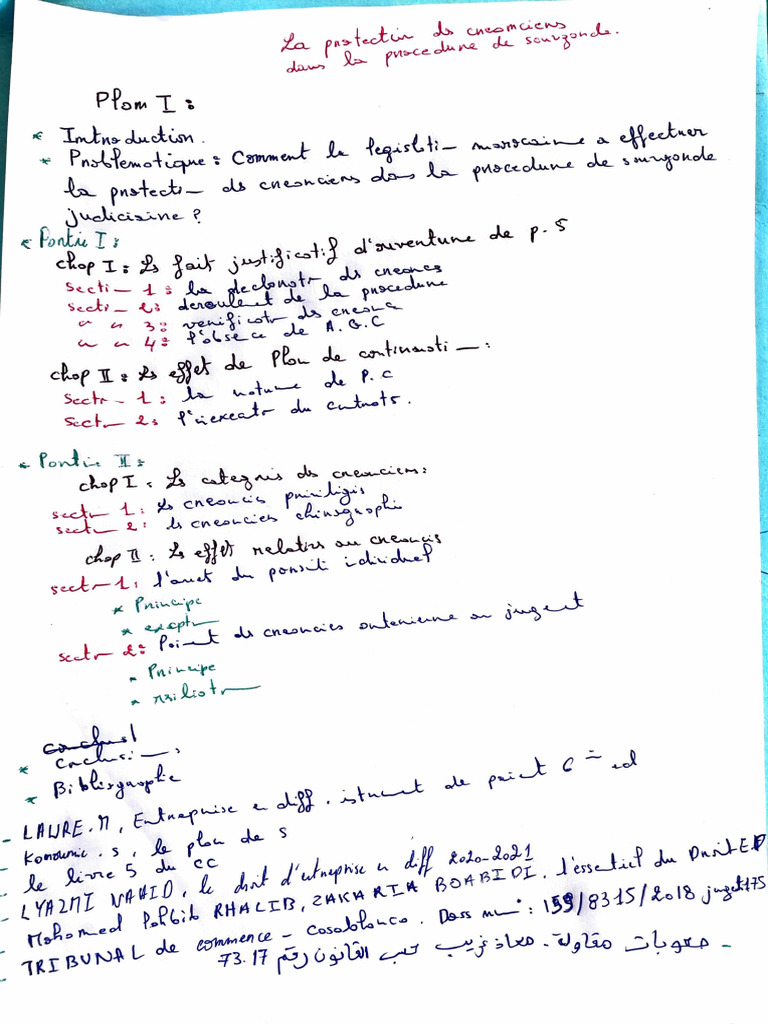 La protection ds creanciers
dans la procedure de sauvgarde.
Plan I :
* Introduction.
* Problematique : Comment la legislati– marocaine a effectuer
la protecti– ds creanciers dans la procedure de sauvgarde
judiciaire ?
* Partie I :
chap I : Ls fait justificatif d'ouverture de p.S
Secti– 1 : la declarat° ds creances
Secti– 2 : deroulent de la procedure
" " 3 : verificat° ds creanc
" " 4 : l'absence de A.G.C
chap II : Ls effet de Plan de continuati– :
Sect– 1 : la nature de P.C
Sect– 2 : l'inexecat° du contrats.
* Partie II :
chap I : Ls categris ds creanciers :
sect– 1 : Ls creancis priviligis
sect– 2 : ds creancies chirographie
chap II : Ls effet relatifs au creancis
sect– 1 : l'arret du poursiti idividuel
* Principe
* except–
sect– 2 : Paiment ds creancies anterieure au jugent
* Principe
*
* Conclusi–,
* Bibliographie
- LAURE.N, Entreprise en diff. istrument de paient 6 = ed
s, le plan de s
- le livre 5 du CC
- LYAZMI NAHID, le droit d'entreprise en diff 2020-2021
- Mohamed RHALIB, ZAKARIA BOABIDI. l'essentiel du Droit ED
- TRIBUNAL de commerce – Casablanca. Doss num° : 159/8315/2018 juget 175
- صعوبات مقاولة. معاذ غريب حسب القانون رقم 73.17